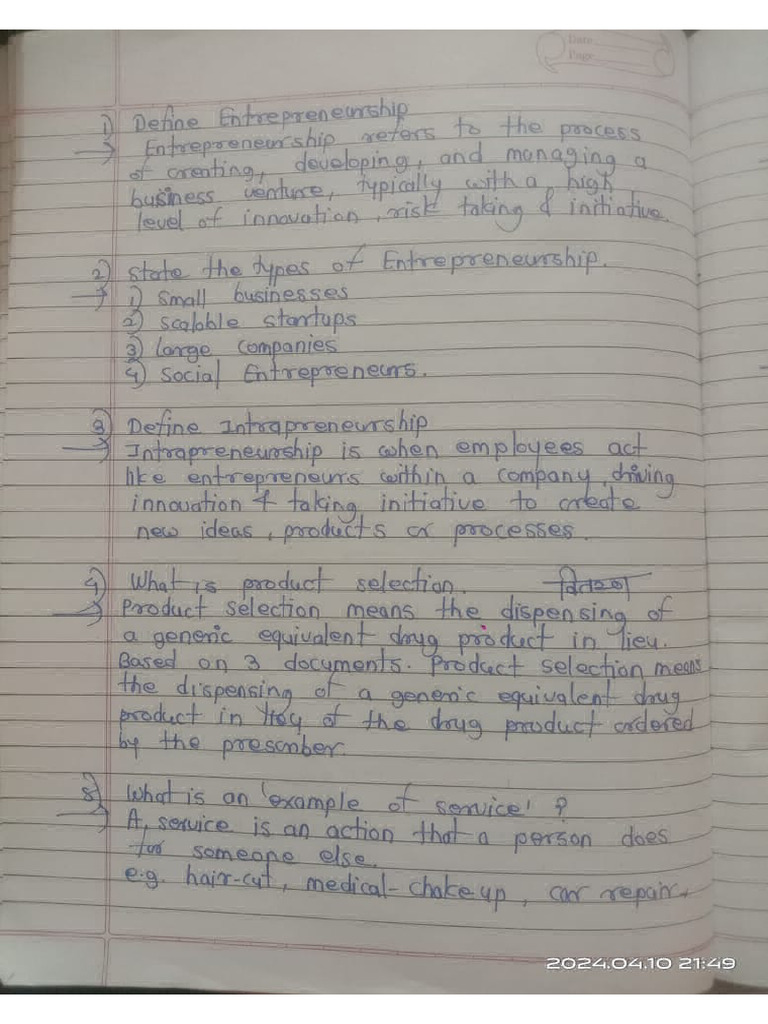 Date
Page
1) Define Entrepreneurship
→ Entrepreneurship refers to the process
of creating, developing, and managing a
business venture, typically with a high
level of innovation, risk taking & initiative.
2) State the types of Entrepreneurship.
→ 1) Small businesses
2) scalable startups
3) large companies
4) social Entrepreneurs.
3) Define Intrapreneurship
→ Intrapreneurship is when employees act
like entrepreneurs within a company, driving
innovation & taking initiative to create
new ideas, products or processes.
4) What is product selection. वितरण
→ Product selection means the dispensing of
a generic equivalent drug product in lieu.
Based on 3 documents. Product selection means
the dispensing of a generic equivalent drug
product in of the drug product ordered
by the prescriber.
5) What is an 'example of service' ?
→ A, service is an action that a person does
for someone else.
e.g. hair-cut, medical-chakeup, car repair.
2024.04.10 21:49